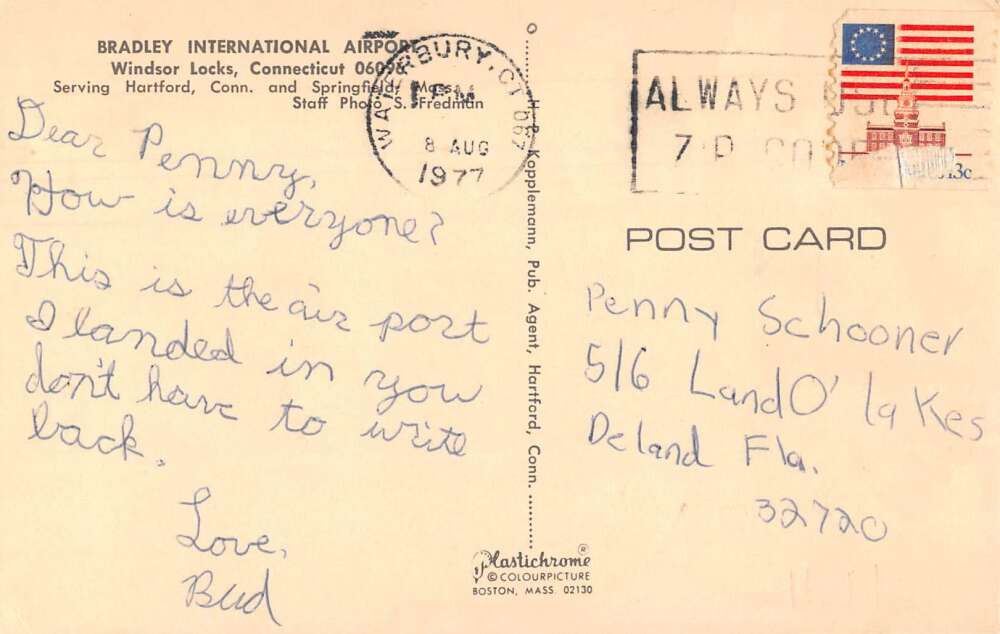 BRADLEY INTERNATIONAL AIRPORT
Windsor Locks, Connecticut 06096
Serving Hartford, Conn. and Springfield, Mass.
Staff Photo S. Fredman
Dear Penny,
How is everyone?
This is the air port
I landed in you
don't have to write
back.
Love,
Bud
H. P. Kopplemann, Pub. Agent, Hartford, Conn.
Plastichrome ®
© COLOURPICTURE
BOSTON, MASS. 02130
WATERBURY, CT 067
PM
8 AUG
1977
ALWAYS USE
ZIP CODE
13c
POST CARD
Penny Schooner
516 LandO' lakes
Deland Fla.
32720